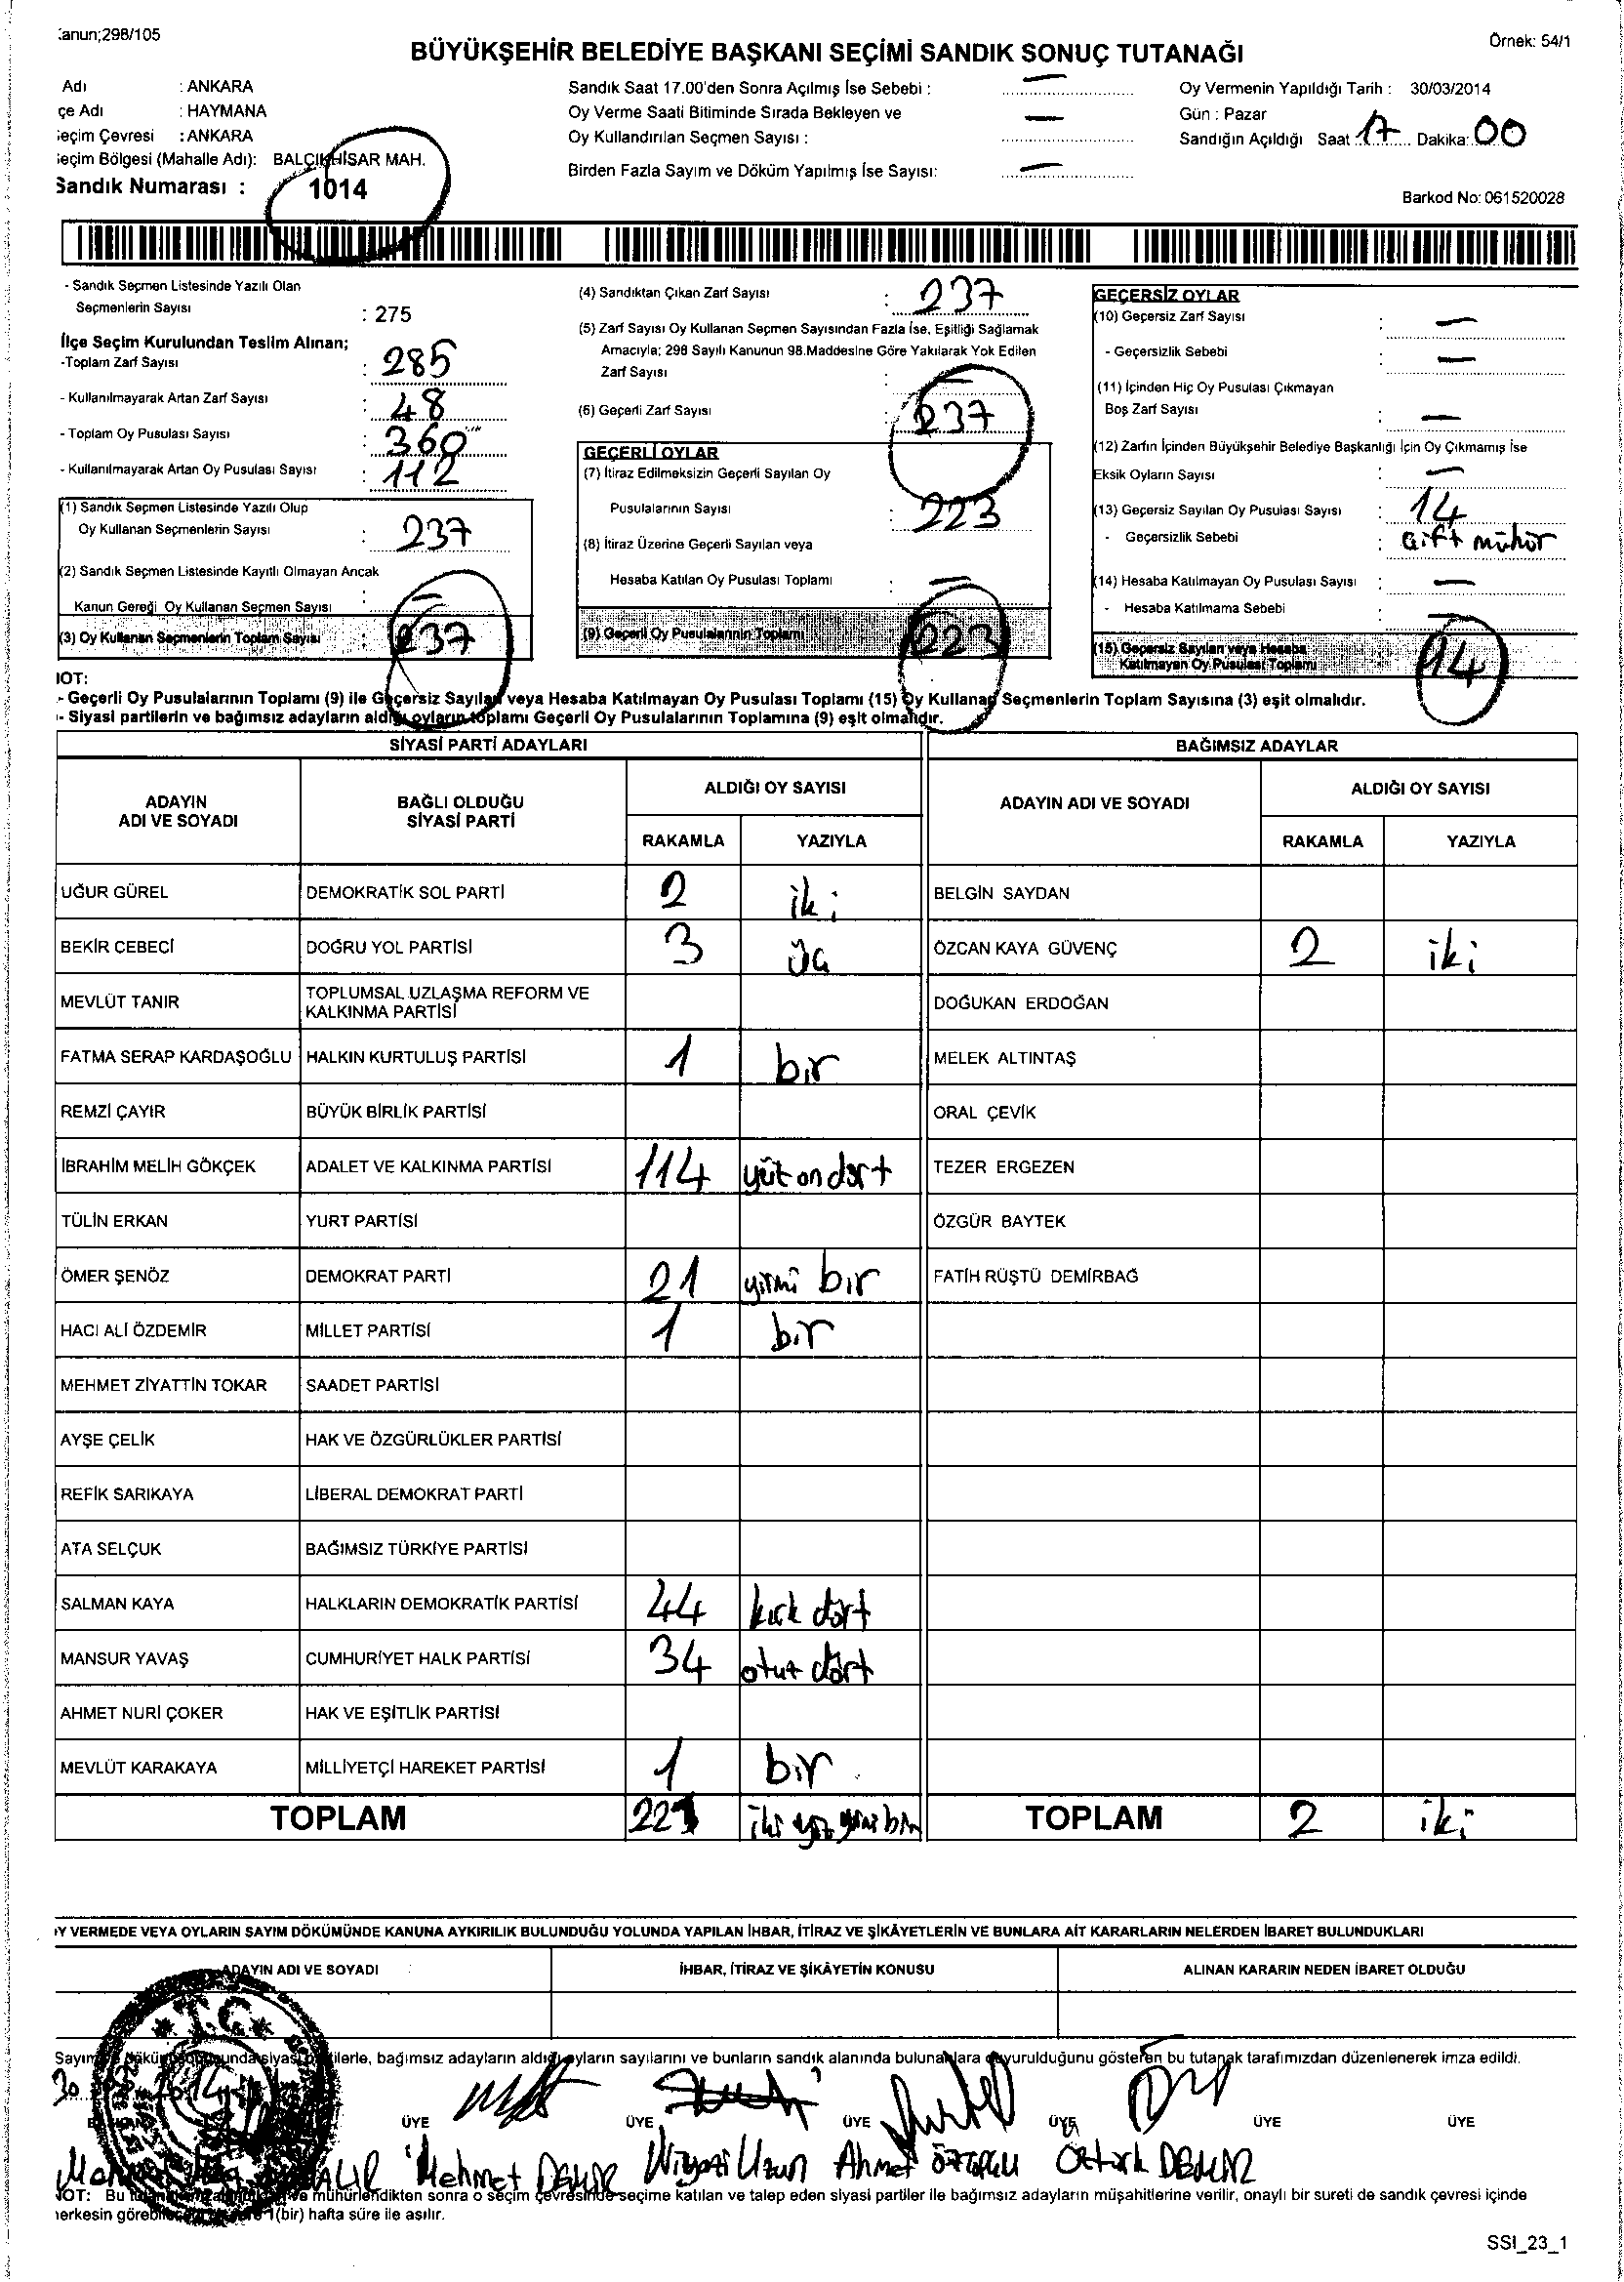 anun;298/105
Örnek: 54/1
BÜYÜKŞEHİR BELEDİYE BAŞKANI SEÇİMİ SANDIK SONUÇ TUTANAĞI
Adı : ANKARA
çe Adı : HAYMANA
eçim Çevresi : ANKARA
eçim Bölgesi (Mahalle Adı): BALÇIKHİSAR MAH.
Sandık Numarası : 1014
Sandık Saat 17.00'den Sonra Açılmış İse Sebebi : —
Oy Verme Saati Bitiminde Sırada Bekleyen ve
Oy Kullandırılan Seçmen Sayısı : —
Birden Fazla Sayım ve Döküm Yapılmış İse Sayısı: —
Oy Vermenin Yapıldığı Tarih : 30/03/2014
Gün : Pazar
Sandığın Açıldığı Saat 17 Dakika: 00
Barkod No: 061520028
- Sandık Seçmen Listesinde Yazılı Olan
Seçmenlerin Sayısı : 275
İlçe Seçim Kurulundan Teslim Alınan;
-Toplam Zarf Sayısı : 285
- Kullanılmayarak Artan Zarf Sayısı : 48
- Toplam Oy Pusulası Sayısı : 360
- Kullanılmayarak Artan Oy Pusulası Sayısı : 112
(1) Sandık Seçmen Listesinde Yazılı Olup
Oy Kullanan Seçmenlerin Sayısı : 237
(2) Sandık Seçmen Listesinde Kayıtlı Olmayan Ancak
Kanun Gereği Oy Kullanan Seçmen Sayısı : —
(3) Oy Kullanan Seçmenlerin Toplam Sayısı : 237
(4) Sandıktan Çıkan Zarf Sayısı : 237
(5) Zarf Sayısı Oy Kullanan Seçmen Sayısından Fazla İse, Eşitliği Sağlamak
Amacıyla; 298 Sayılı Kanunun 98.Maddesine Göre Yakılarak Yok Edilen
Zarf Sayısı : —
(6) Geçerli Zarf Sayısı : 237
GEÇERLİ OYLAR
(7) İtiraz Edilmeksizin Geçerli Sayılan Oy
Pusulalarının Sayısı : 223
(8) İtiraz Üzerine Geçerli Sayılan veya
Hesaba Katılan Oy Pusulası Toplamı : —
(9) Geçerli Oy Pusulalarının Toplamı : 223
GEÇERSİZ OYLAR
(10) Geçersiz Zarf Sayısı : —
- Geçersizlik Sebebi : —
(11) İçinden Hiç Oy Pusulası Çıkmayan
Boş Zarf Sayısı : —
(12) Zarfın İçinden Büyükşehir Belediye Başkanlığı İçin Oy Çıkmamış İse
Eksik Oyların Sayısı : —
(13) Geçersiz Sayılan Oy Pusulası Sayısı : 14
- Geçersizlik Sebebi : Çift mühür
(14) Hesaba Katılmayan Oy Pusulası Sayısı : —
- Hesaba Katılmama Sebebi :
(15) Geçersiz Sayılan veya Hesaba
Katılmayan Oy Pusulası Toplamı : 14
NOT:
- Geçerli Oy Pusulalarının Toplamı (9) ile Geçersiz Sayılan veya Hesaba Katılmayan Oy Pusulası Toplamı (15) Oy Kullanan Seçmenlerin Toplam Sayısına (3) eşit olmalıdır.
- Siyasi partilerin ve bağımsız adayların aldığı oyların toplamı Geçerli Oy Pusulalarının Toplamına (9) eşit olmalıdır.
SİYASİ PARTİ ADAYLARI BAĞIMSIZ ADAYLAR
ADAYIN ADI VE SOYADI BAĞLI OLDUĞU SİYASİ PARTİ ALDIĞI OY SAYISI ADAYIN ADI VE SOYADI ALDIĞI OY SAYISI
RAKAMLA YAZIYLA RAKAMLA YAZIYLA
UĞUR GÜREL DEMOKRATİK SOL PARTİ 2 iki BELGİN SAYDAN
BEKİR CEBECİ DOĞRU YOL PARTİSİ 3 üç ÖZCAN KAYA GÜVENÇ 2 iki
MEVLÜT TANIR TOPLUMSAL UZLAŞMA REFORM VE KALKINMA PARTİSİ DOĞUKAN ERDOĞAN
FATMA SERAP KARDAŞOĞLU HALKIN KURTULUŞ PARTİSİ 1 bir MELEK ALTINTAŞ
REMZİ ÇAYIR BÜYÜK BİRLİK PARTİSİ ORAL ÇEVİK
İBRAHİM MELİH GÖKÇEK ADALET VE KALKINMA PARTİSİ 114 yüt on dört TEZER ERGEZEN
TÜLİN ERKAN YURT PARTİSİ ÖZGÜR BAYTEK
ÖMER ŞENÖZ DEMOKRAT PARTİ 21 yirmi bir FATİH RÜŞTÜ DEMİRBAĞ
HACI ALİ ÖZDEMİR MİLLET PARTİSİ 1 bir
MEHMET ZİYATTİN TOKAR SAADET PARTİSİ
AYŞE ÇELİK HAK VE ÖZGÜRLÜKLER PARTİSİ
REFİK SARIKAYA LİBERAL DEMOKRAT PARTİ
ATA SELÇUK BAĞIMSIZ TÜRKİYE PARTİSİ
SALMAN KAYA HALKLARIN DEMOKRATİK PARTİSİ 44 kırk dört
MANSUR YAVAŞ CUMHURİYET HALK PARTİSİ 34 otut dört
AHMET NURİ ÇOKER HAK VE EŞİTLİK PARTİSİ
MEVLÜT KARAKAYA MİLLİYETÇİ HAREKET PARTİSİ 1 bir
TOPLAM 221 iki yüz yirmi bir TOPLAM 2 iki
Y VERMEDE VEYA OYLARIN SAYIM DÖKÜMÜNDE KANUNA AYKIRILIK BULUNDUĞU YOLUNDA YAPILAN İHBAR, İTİRAZ VE ŞİKÂYETLERİN VE BUNLARA AİT KARARLARIN NELERDEN İBARET BULUNDUKLARI
ADAYIN ADI VE SOYADI İHBAR, İTİRAZ VE ŞİKÂYETİN KONUSU ALINAN KARARIN NEDEN İBARET OLDUĞU
T.C.
Sayım döküm sonucunda siyasi partilerle, bağımsız adayların aldığı oyların sayılarını ve bunların sandık alanında bulunanlara duyurulduğunu gösteren bu tutanak tarafımızdan düzenlenerek imza edildi.
30
ÜYE ÜYE ÜYE ÜYE ÜYE ÜYE
Mehmet DEMİR Niyazi Uzun Ahmet Öztürk DEMİR
NOT: Bu mühürlendikten sonra o seçim çevresinde seçime katılan ve talep eden siyasi partiler ile bağımsız adayların müşahitlerine verilir, onaylı bir sureti de sandık çevresi içinde
herkesin 1(bir) hafta süre ile asılır.
SSI_23_1